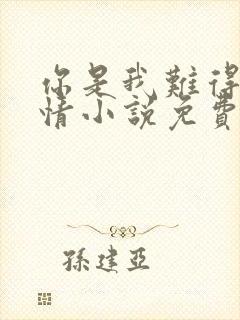 你是我難得
情小說免費
孫建亞